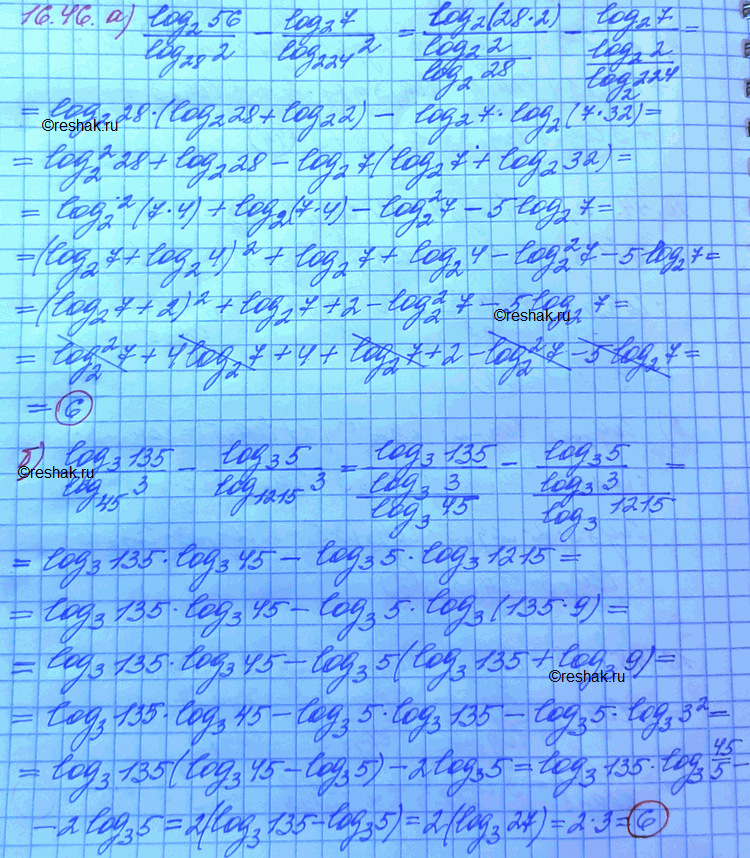 16.46. а) log₂56/log₂₈2 − log₂7/log₂₂₄2 = log₂(28·2)/(log₂2/log₂28) − log₂7/(log₂2/log₂224) =
= log₂28·(log₂28+log₂2) − log₂7·log₂(7·32) =
©reshak.ru
= log₂²28 + log₂28 − log₂7(log₂7 + log₂32) =
= log₂²(7·4) + log₂(7·4) − log₂²7 − 5log₂7 =
= (log₂7 + log₂4)² + log₂7 + log₂4 − log₂²7 − 5log₂7 =
= (log₂7 + 2)² + log₂7 + 2 − log₂²7 − 5log₂7 =
©reshak.ru
= log₂²7 + 4log₂7 + 4 + log₂7 + 2 − log₂²7 − 5log₂7 =
= 6
б) log₃135/log₄₅3 − log₃5/log₁₂₁₅3 = log₃135/(log₃3/log₃45) − log₃5/(log₃3/log₃1215) =
©reshak.ru
= log₃135·log₃45 − log₃5·log₃1215 =
= log₃135·log₃45 − log₃5·log₃(135·9) =
= log₃135·log₃45 − log₃5(log₃135 + log₃9) =
©reshak.ru
= log₃135·log₃45 − log₃5·log₃135 − log₃5·log₃3² =
= log₃135(log₃45 − log₃5) − 2log₃5 = log₃135·log₃45/5 −
− 2log₃5 = 2(log₃135 − log₃5) = 2(log₃27) = 2·3 = 6